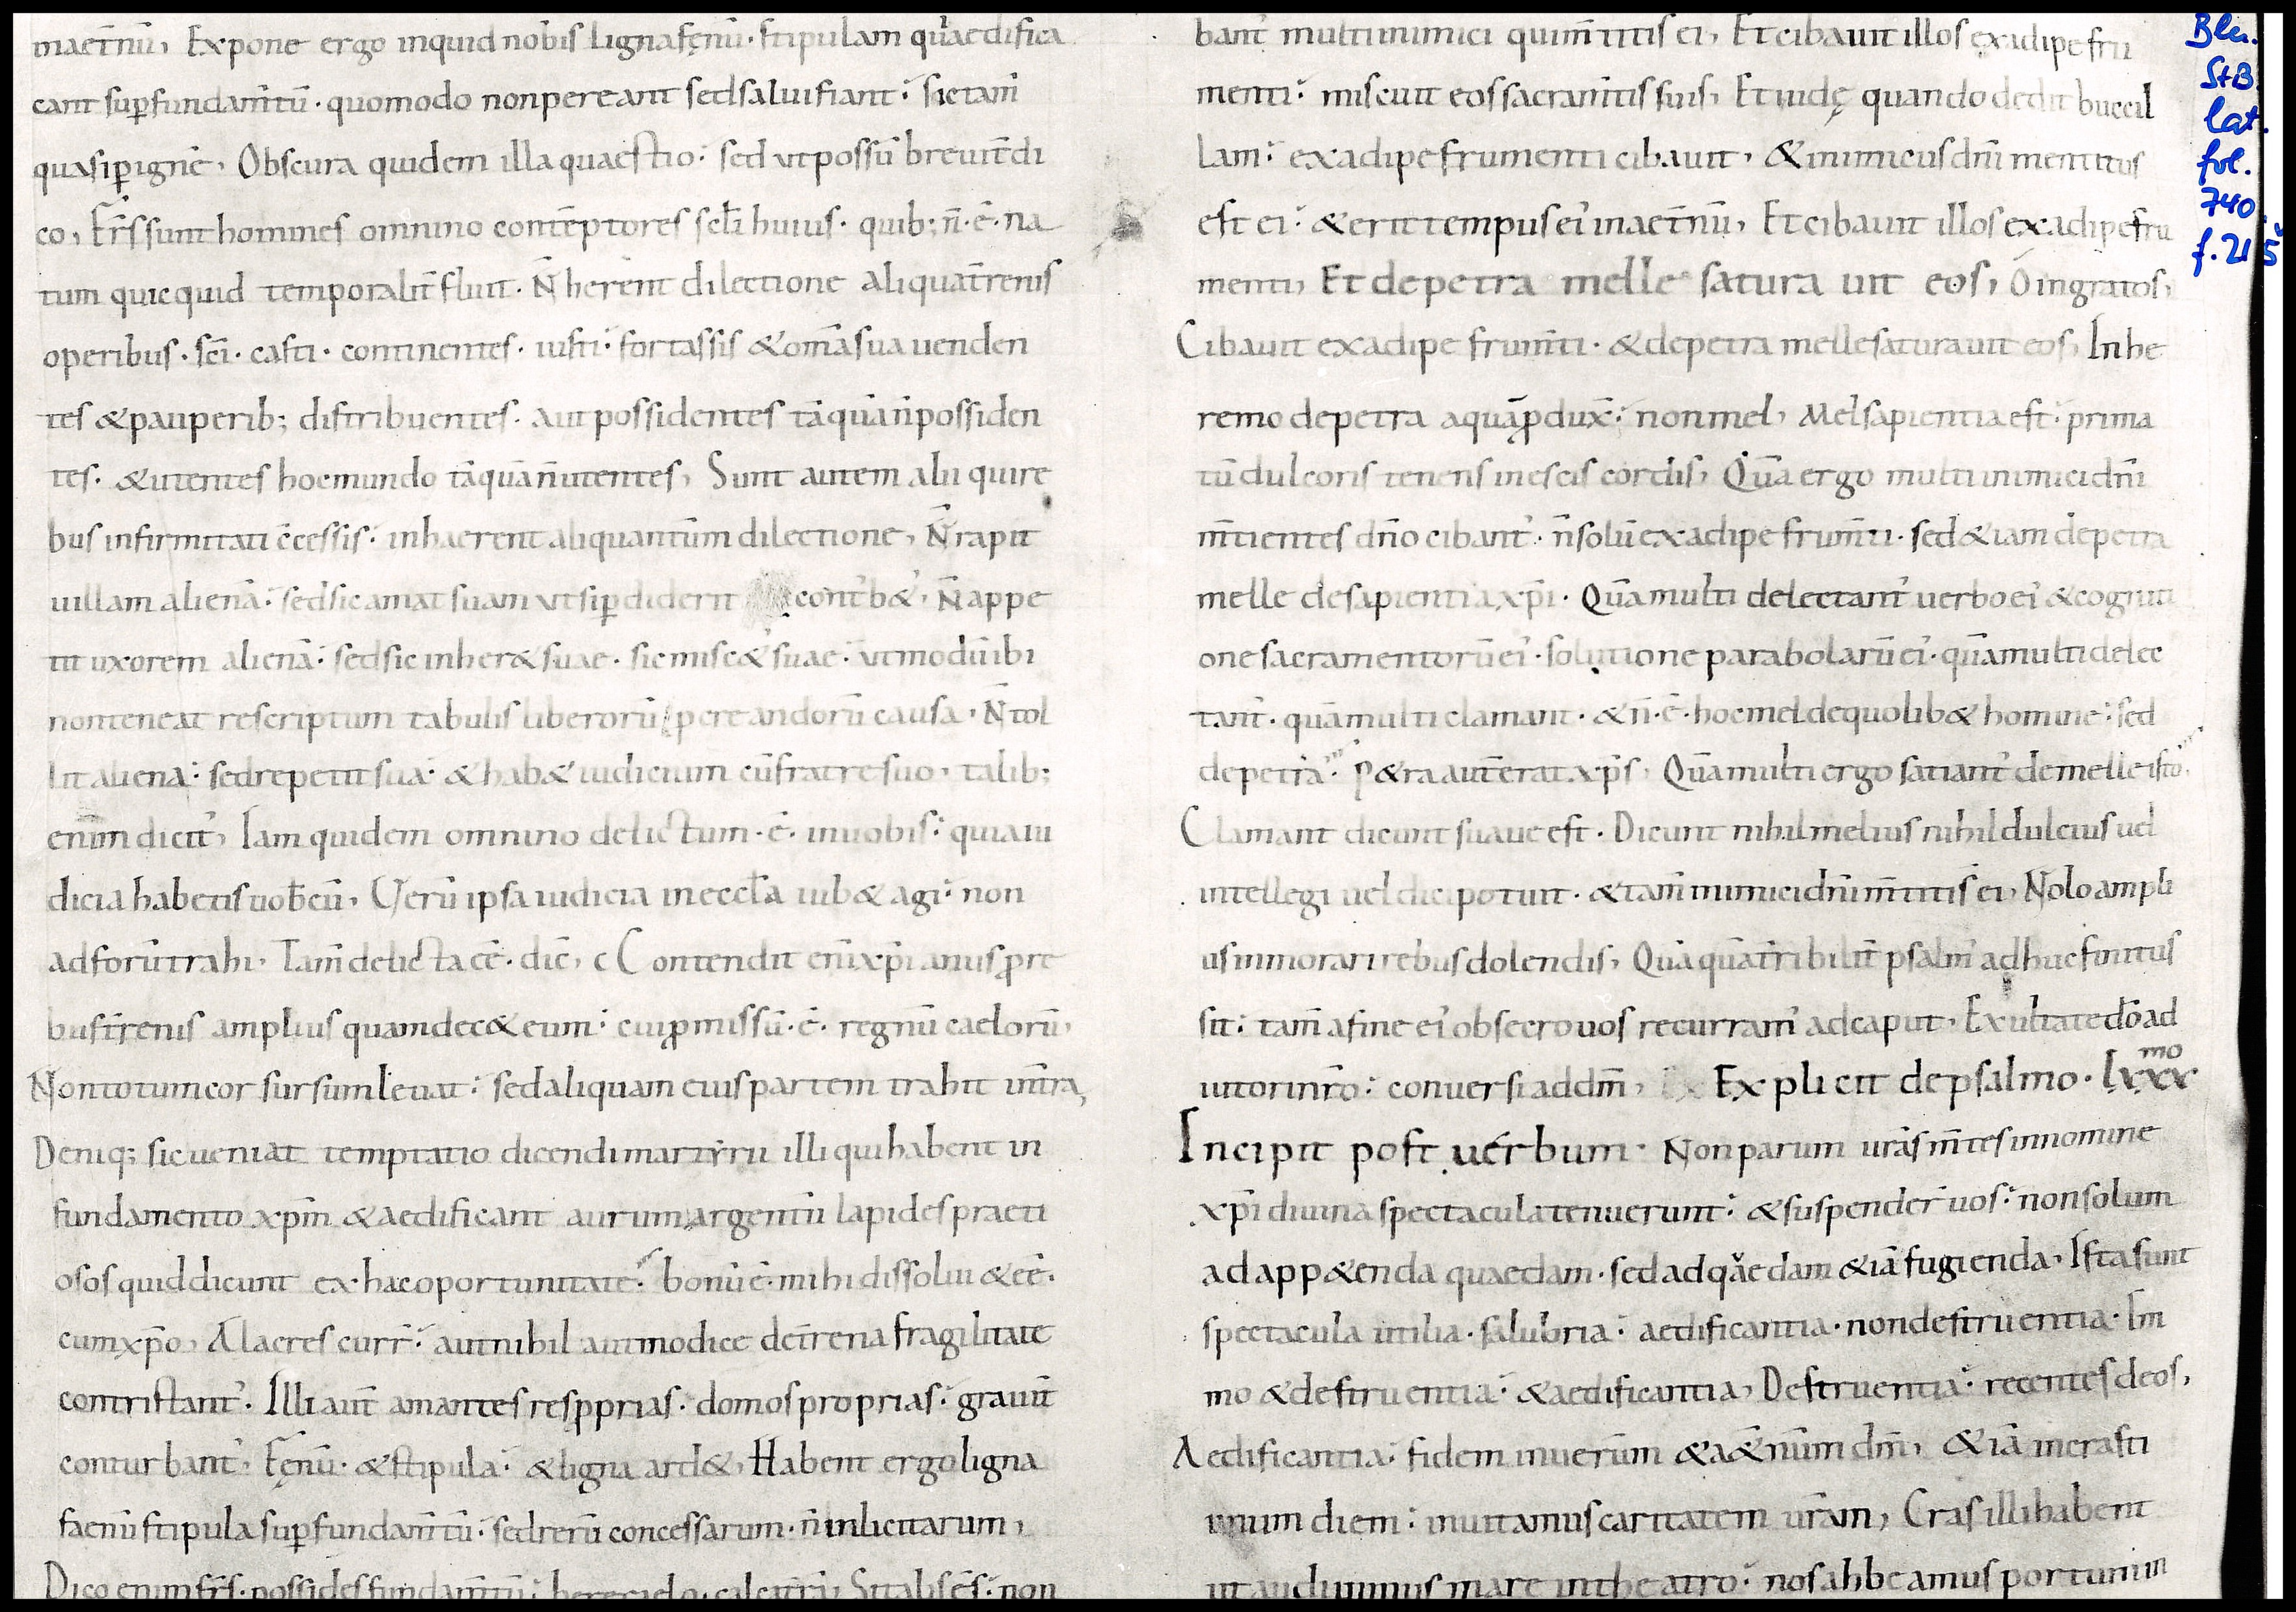 inaet̄nū, Expone ergo inquid nobis ligna fęnū· stipulam qui aedifica
cant sup̱ fundam̄tū· quomodo non pereant sed salui fiant· sic tam̄
quasi p̱ ignē, Obscura quidem illa quaestio· sed ut possū breuit̄ di
co, Fr̄s sunt homines omnino contēptores sc̄li huius· quib; n̄·ē· na
tum quicquid temporalit̄ fluit· N̄ herent dilectione aliqua t̄renis
operibus· sc̄i· casti· continentes· iusti· fortassis & om̄a sua uenden
tes & pauperib; distribuentes· aut possidentes tāquā n̄ possiden
tes· & utentes hoc mundo tāquā n̄ utentes, Sunt autem alii qui re
bus infirmitati c̄cessis· inhaerent aliquantūm dilectione, N̄ rapit
uillam alienā· sed sic amat suam ut si p̱diderit cont̄b&', N̄ appe
tit uxorem alienā· sed sic inher& suae· sic misc&' suae· ut modū ibi
non teneat rescriptum tabulis liberorū pereandorū causa· N̄ tol
lit aliena· sed repetit sua· & hab& iudicium cū fratre suo, talib;
enim dicit', Iam quidem omnino delictum·ē· in uobis· quia iu
dicia habetis uob̄cū, Verū ipsa iudicia in eccl̄a iub& agi· non
ad forū trahi· Tam̄ delicta cē· dic̄, c Contendit en̄i xp̄ianus p̱ re
bus t̄renis amplius quam dec& eum· cui p̱missū·ē· regnū caelorū,
Non totum cor sursum leuat· sed aliquam eius partem trahit in t̄ra,
Deniq; sic ueniat temptatio dicendi martyrii illi qui habent in
fundamento xp̄m & aedificant aurum argentū lapides praeti
osos quid dicunt ex hac oportunitate· bonū ē· mihi dissolui & eē·
cum xp̄o, Alacres curr̄· aut nihil aut modice de t̄rena fragilitate
contristant'· Illi aut̄ amantes res p̱prias· domos proprias· grauit̄
conturbant', Fęnū· & stipula· & ligna ard&, Habent ergo ligna
faenū stipula sup̱ fundam̄tū· sed rerū concessarum· n̄ inlicitarum,
Dico enim fr̄s· possides fundam̄tū· here cielo· calca t̄rā, Si talis ēs· non
bant' multi inimici qui m̄titi s̄ ei, Et cibauit illos ex adipe fru
menti· miscuit eos sacram̄tis suis, Et iudę quando dedit buccil
lam· ex adipe frumenti cibauit, & inimicus dn̄i mentitus
est ei· & erit tempus ei' in aet̄nū, Et cibauit illos ex adipe fru
menti, Et de petra melle satura uit eos, O ingratos,
Cibauit ex adipe frum̄ti· & de petra melle saturauit eos, In he
remo de petra aquā p̱dux̄· non mel, Mel sapientia est· prima
tū dulcoris tenens in escis cordis, Quā ergo multi inimici dn̄i
m̄tientes dn̄o cibant'· n̄ solū ex adipe frum̄ti· sed & iam de petra
melle de sapientia xp̄i· Quā multi delectant' uerbo ei' & cogniti
one sacramentorū ei'· solutione parabolarū ei'· quā multi delec
tant'· quā multi clamant· & n̄·ē· hoc mel de quolib& homine· sed
de petra· P&ra aut̄ erat xp̄s, Quā multi ergo satiant' de melle isto·
Clamant dicunt suaue est· Dicunt nihil melius nihil dulcius uel
intellegi uel dici potuit· & tam̄ inimici dn̄i m̄titi s̄ ei, Nolo ampli
us inmorari rebus dolendis, Quā quā t̄ribilit̄ psalm' ad huc finitus
sit· tam̄ a fine ei' obsecro uos recurram' ad caput, Exultate dō ad
iutori nr̄o· conuersi ad dm̄, Explicit de psalmo· lxxx mo
Incipit post uérbum· Non parum urās m̄tes in nomine
xp̄i diuina spectacula tenuerunt· & suspender̄ uos· non solum
ad app&enda quaedam· sed ad quaedam & iā fugienda, Ista sunt
spectacula utilia· salubria· aedificantia· non destruentia· Im
mo & destruentia· & aedificantia, Destruentia· recentes deos,
Aedificantia· fidem in uerūm & a&nūm dm̄, & iā in crasti
num diem· inuitamus caritatem urām, Cras illi habent
ut audiuimus mare in the atro· nos ahbeamus portum in
Bln.
StB
lat.
fol.
740
f. 215v